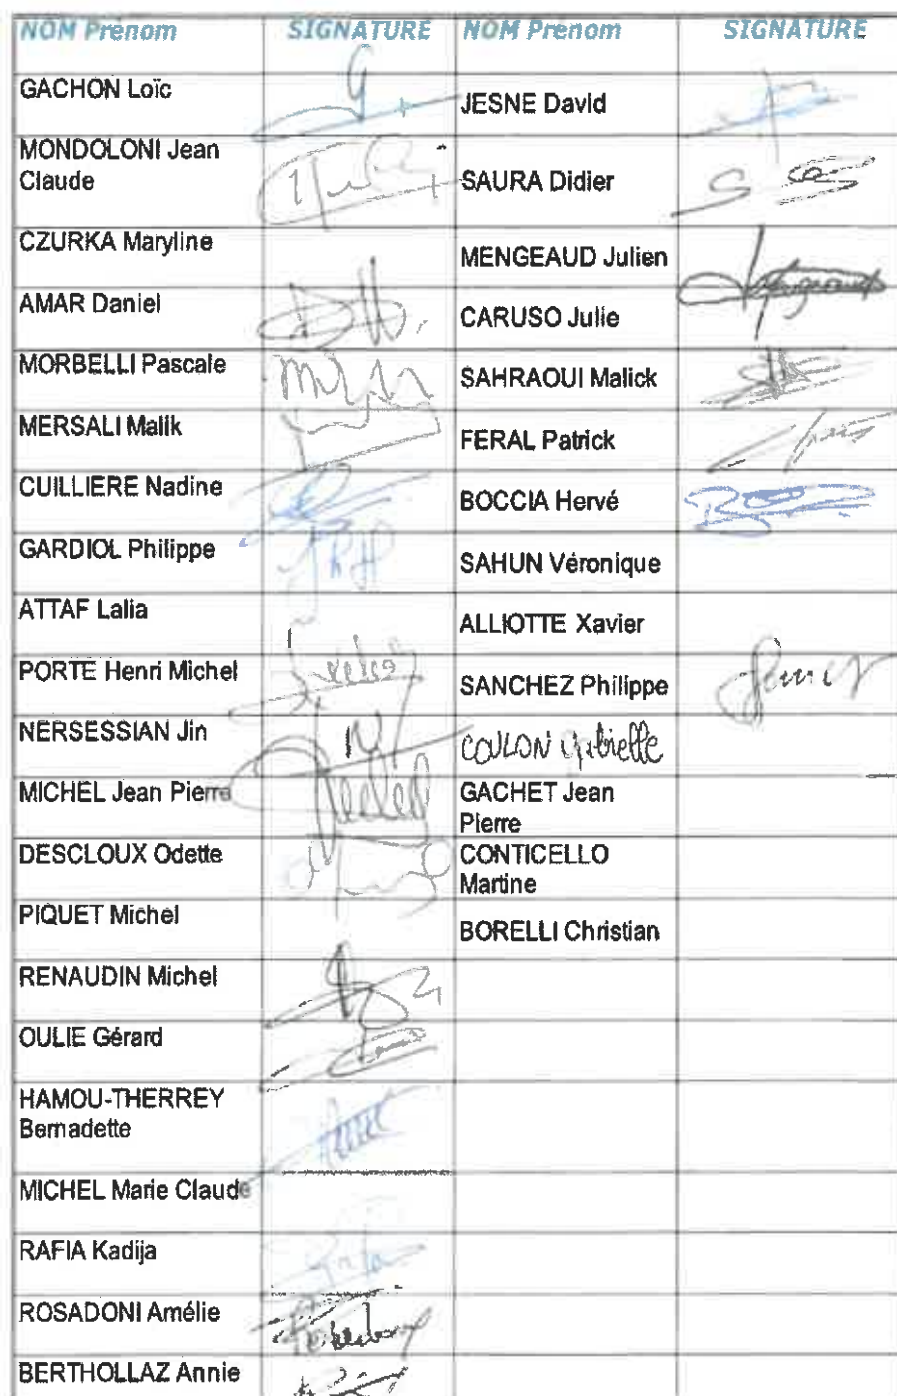 NOM Prenom SIGNATURE NOM Prenom SIGNATURE
GACHON Loïc JESNE David
MONDOLONI Jean
Claude SAURA Didier
CZURKA Maryline MENGEAUD Julien
AMAR Daniel CARUSO Julie
MORBELLI Pascale SAHRAOUI Malick
MERSALI Malik FERAL Patrick
CUILLIERE Nadine BOCCIA Hervé
GARDIOL Philippe SAHUN Véronique
ATTAF Lalia ALLIOTTE Xavier
PORTE Henri Michel SANCHEZ Philippe
NERSESSIAN Jin COULON Gabrielle
MICHEL Jean Pierre GACHET Jean
Pierre
DESCLOUX Odette CONTICELLO
Martine
PIQUET Michel BORELLI Christian
RENAUDIN Michel
OULIE Gérard
HAMOU-THERREY
Bernadette
MICHEL Marie Claude
RAFIA Kadija
ROSADONI Amélie
BERTHOLLAZ Annie